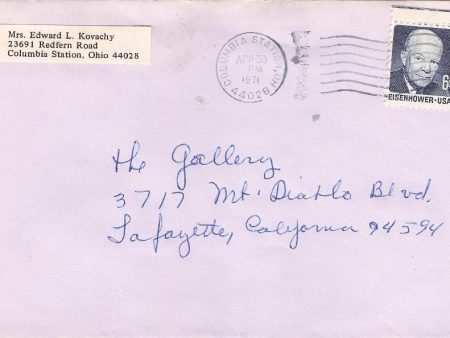 Mrs. Edward L. Kovachy
23691 Redfern Road
Columbia Station, Ohio 44028
COLUMBIA STATION, OH
APR 30
PM
1971
44028
6c
EISENHOWER·USA
The Gallery
3717 Mt. Diablo Blvd.
Lafayette, California 94594